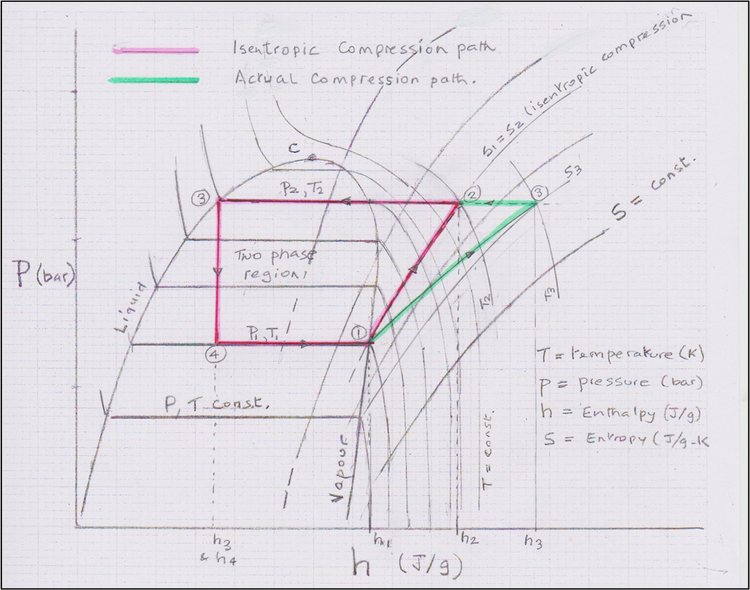 Isentropic Compression path
Actual Compression path.
S1 = S2 (isentropic compression
C
S3
S = const.
③
P2, T2
②
③
P (bar)
Two phase
region,
Liquid
T2
T3
P1, T1
①
④
T = temperature (K)
P = pressure (bar)
h = Enthalpy (J/g)
S = Entropy (J/g-K
P, T const.
T = const.
Vapour
h3
& h4
h2
h3
h (J/g)